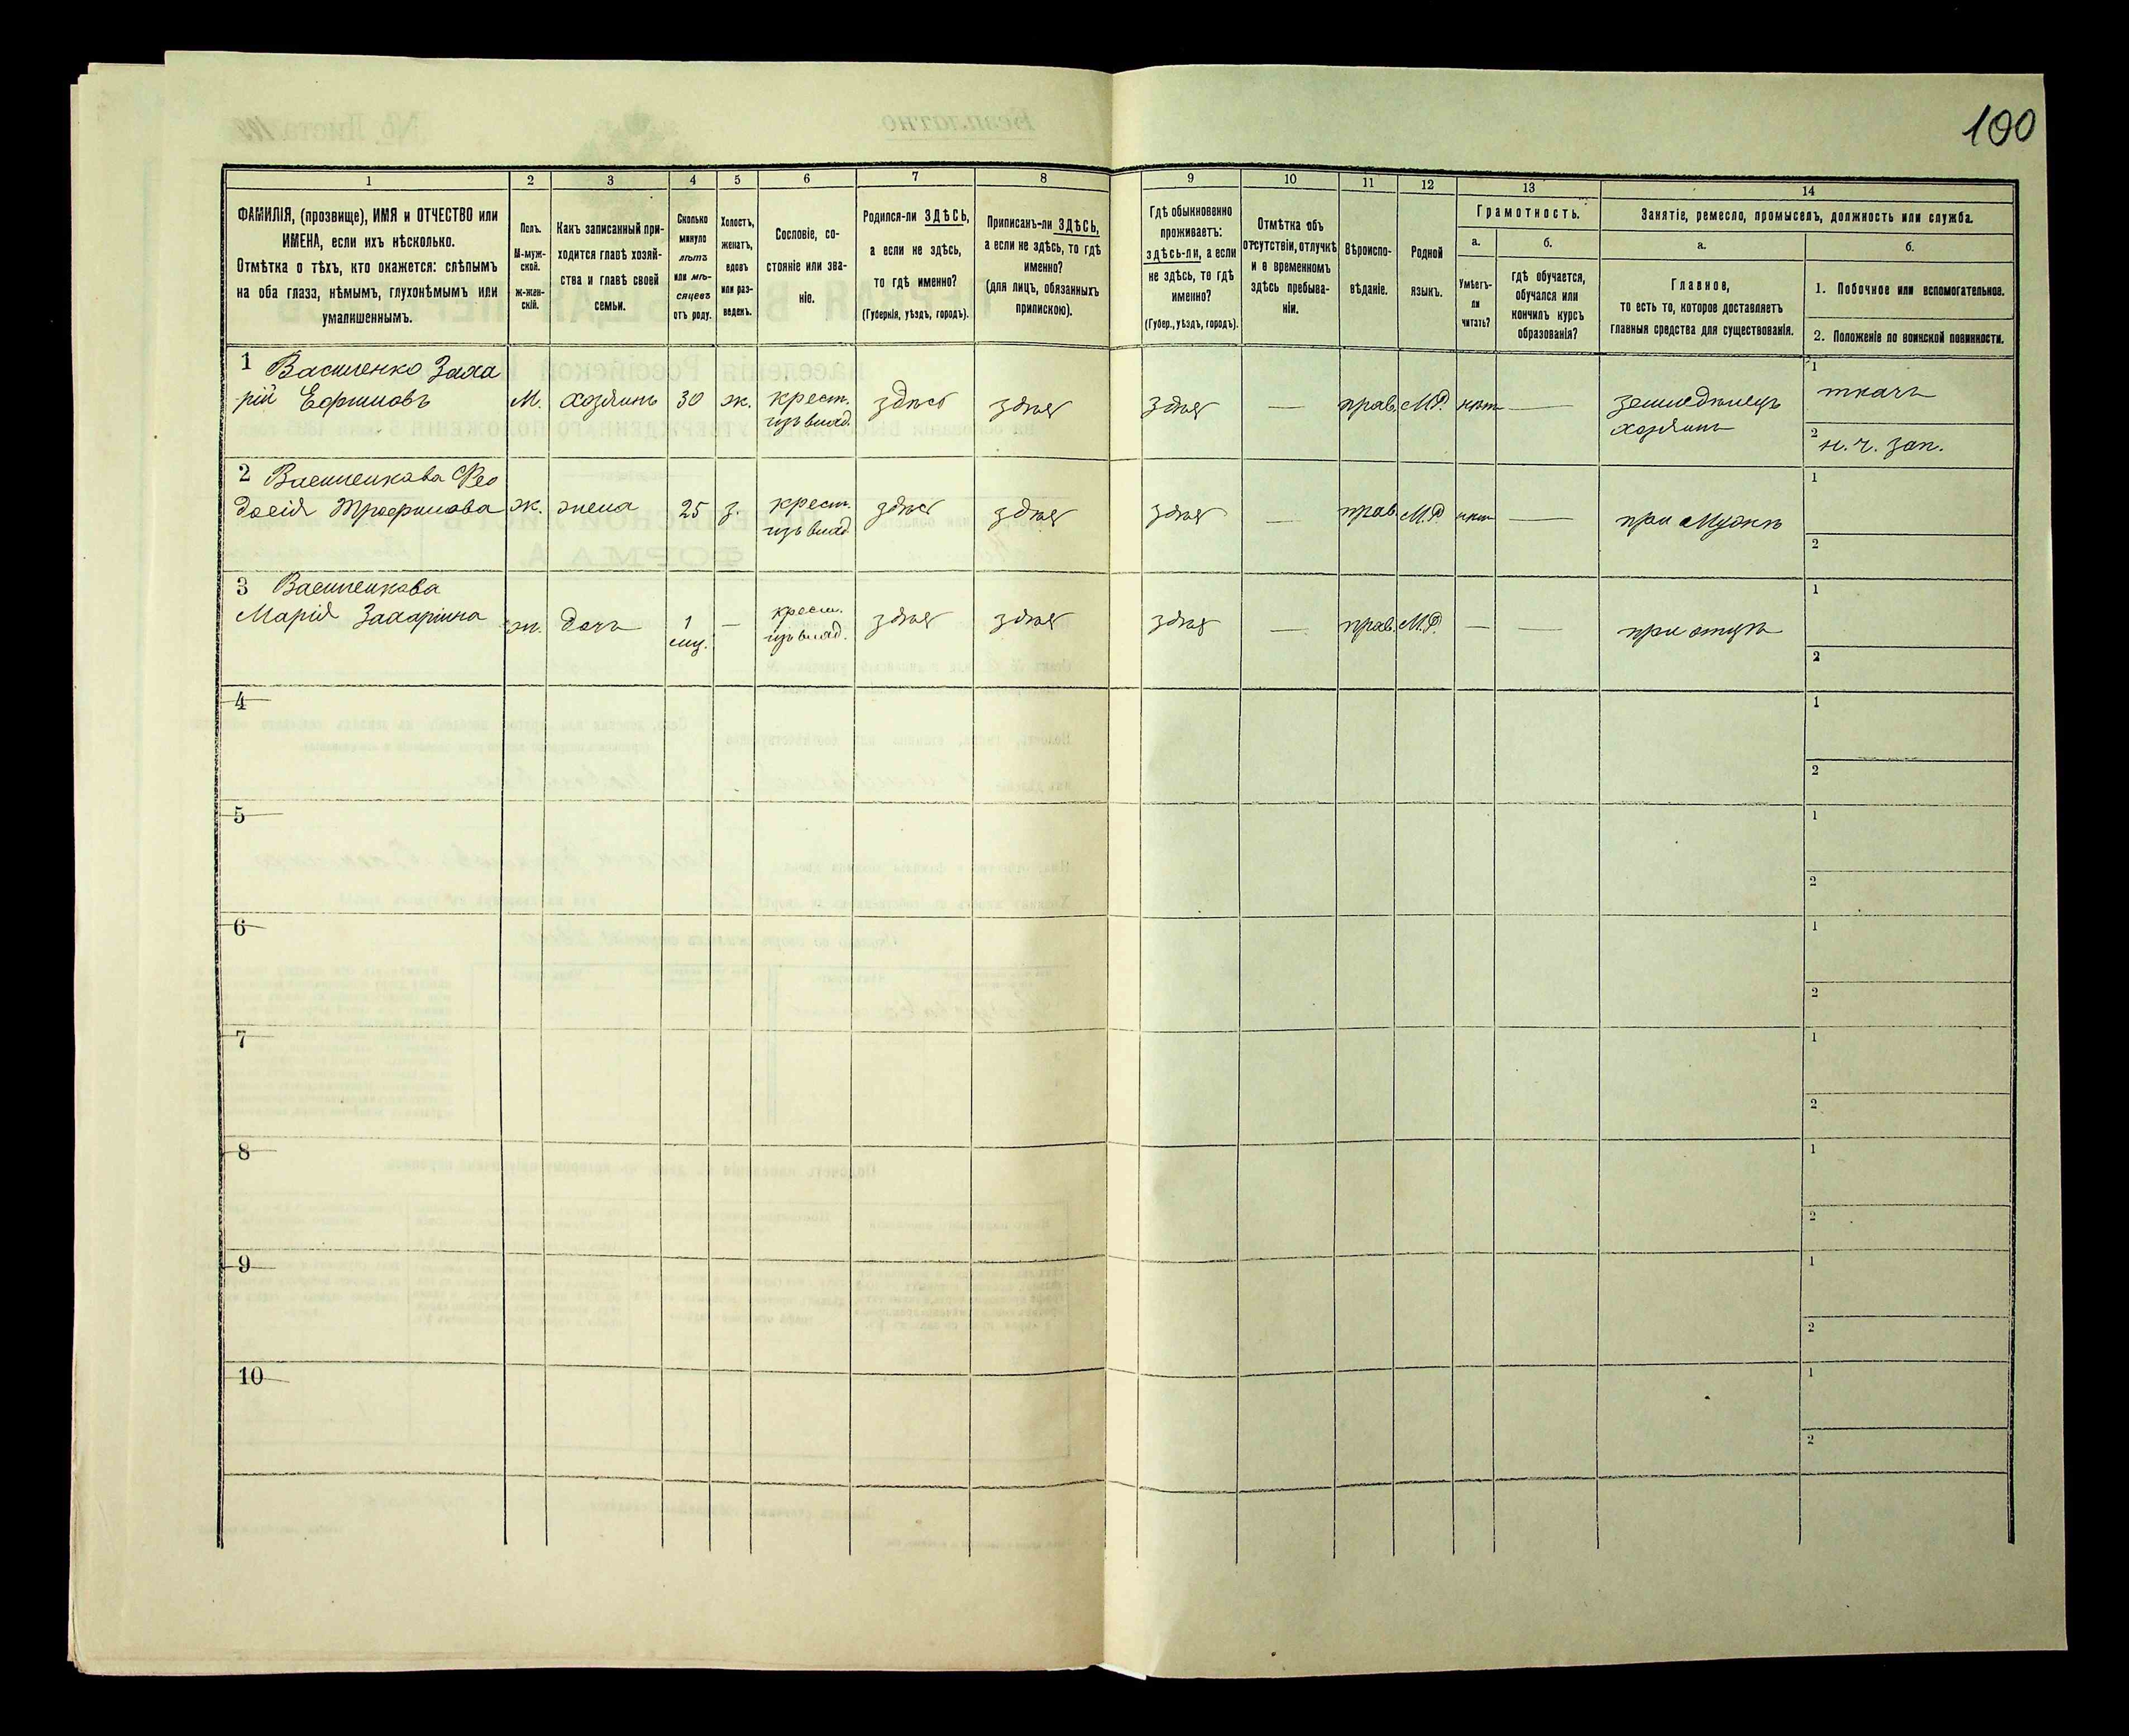 100
1 2 3 4 5 6 7 8 9 10 11 12 13 14
ФАМИЛІЯ, (прозвище), ИМЯ и ОТЧЕСТВО или
ИМЕНА, если ихъ нѣсколько.
Отмѣтка о тѣхъ, кто окажется: слѣпымъ
на оба глаза, нѣмымъ, глухонѣмымъ или
умалишеннымъ.
Полъ.
М-муж-
ской.
Ж-жен-
скій.
Какъ записанный при-
ходится главѣ хозяй-
ства и главѣ своей
семьи.
Сколько
минуло
лѣтъ
или мѣ-
сяцевъ
отъ роду.
Холостъ,
женатъ,
вдовъ
или раз-
веденъ.
Сословіе, со-
стояніе или зва-
ніе.
Родился-ли ЗДѢСЬ,
а если не здѣсь,
то гдѣ именно?
(Губернія, уѣздъ, городъ).
Приписанъ-ли ЗДѢСЬ,
а если не здѣсь, то гдѣ
именно?
(для лицъ, обязанныхъ
припискою).
Гдѣ обыкновенно
проживаетъ:
здѣсь-ли, а если
не здѣсь, то гдѣ
именно?
(Губер., уѣздъ, городъ).
Отмѣтка объ
отсутствіи, отлучкѣ
и о временномъ
здѣсь пребыва-
ніи.
Вѣроиспо-
вѣданіе.
Родной
языкъ.
Грамотность.
а.
Умѣетъ-
ли
читать?
б.
гдѣ обучается,
обучался или
кончилъ курсъ
образованія?
Занятіе, ремесло, промыселъ, должность или служба.
а.
Главное,
то есть то, которое доставляетъ
главныя средства для существованія.
б.
1. Побочное или вспомогательное.
2. Положеніе по воинской повинности.
1 Василенко Заха
рій Ефимовъ М. хозяинъ 30 ж. крест. изъ влад. здѣсь здѣсь здѣсь — прав. М.Р. нѣтъ — земледѣлецъ хозяинъ
1 ткачъ
2 н. ч. зап.
2 Василенкова Фео
досія Трофимова ж. жена 25 з. крест. изъ влад. здѣсь здѣсь здѣсь — прав. М.Р. нѣтъ — при мужѣ
1
2
3 Василенкова
Марія Захаріина ж. дочь 1 мц. — крест. изъ влад. здѣсь здѣсь здѣсь — прав. М.Р. — — при отцѣ
1
2
4 1
2
5 1
2
6 1
2
7 1
2
8 1
2
9 1
2
10 1
2